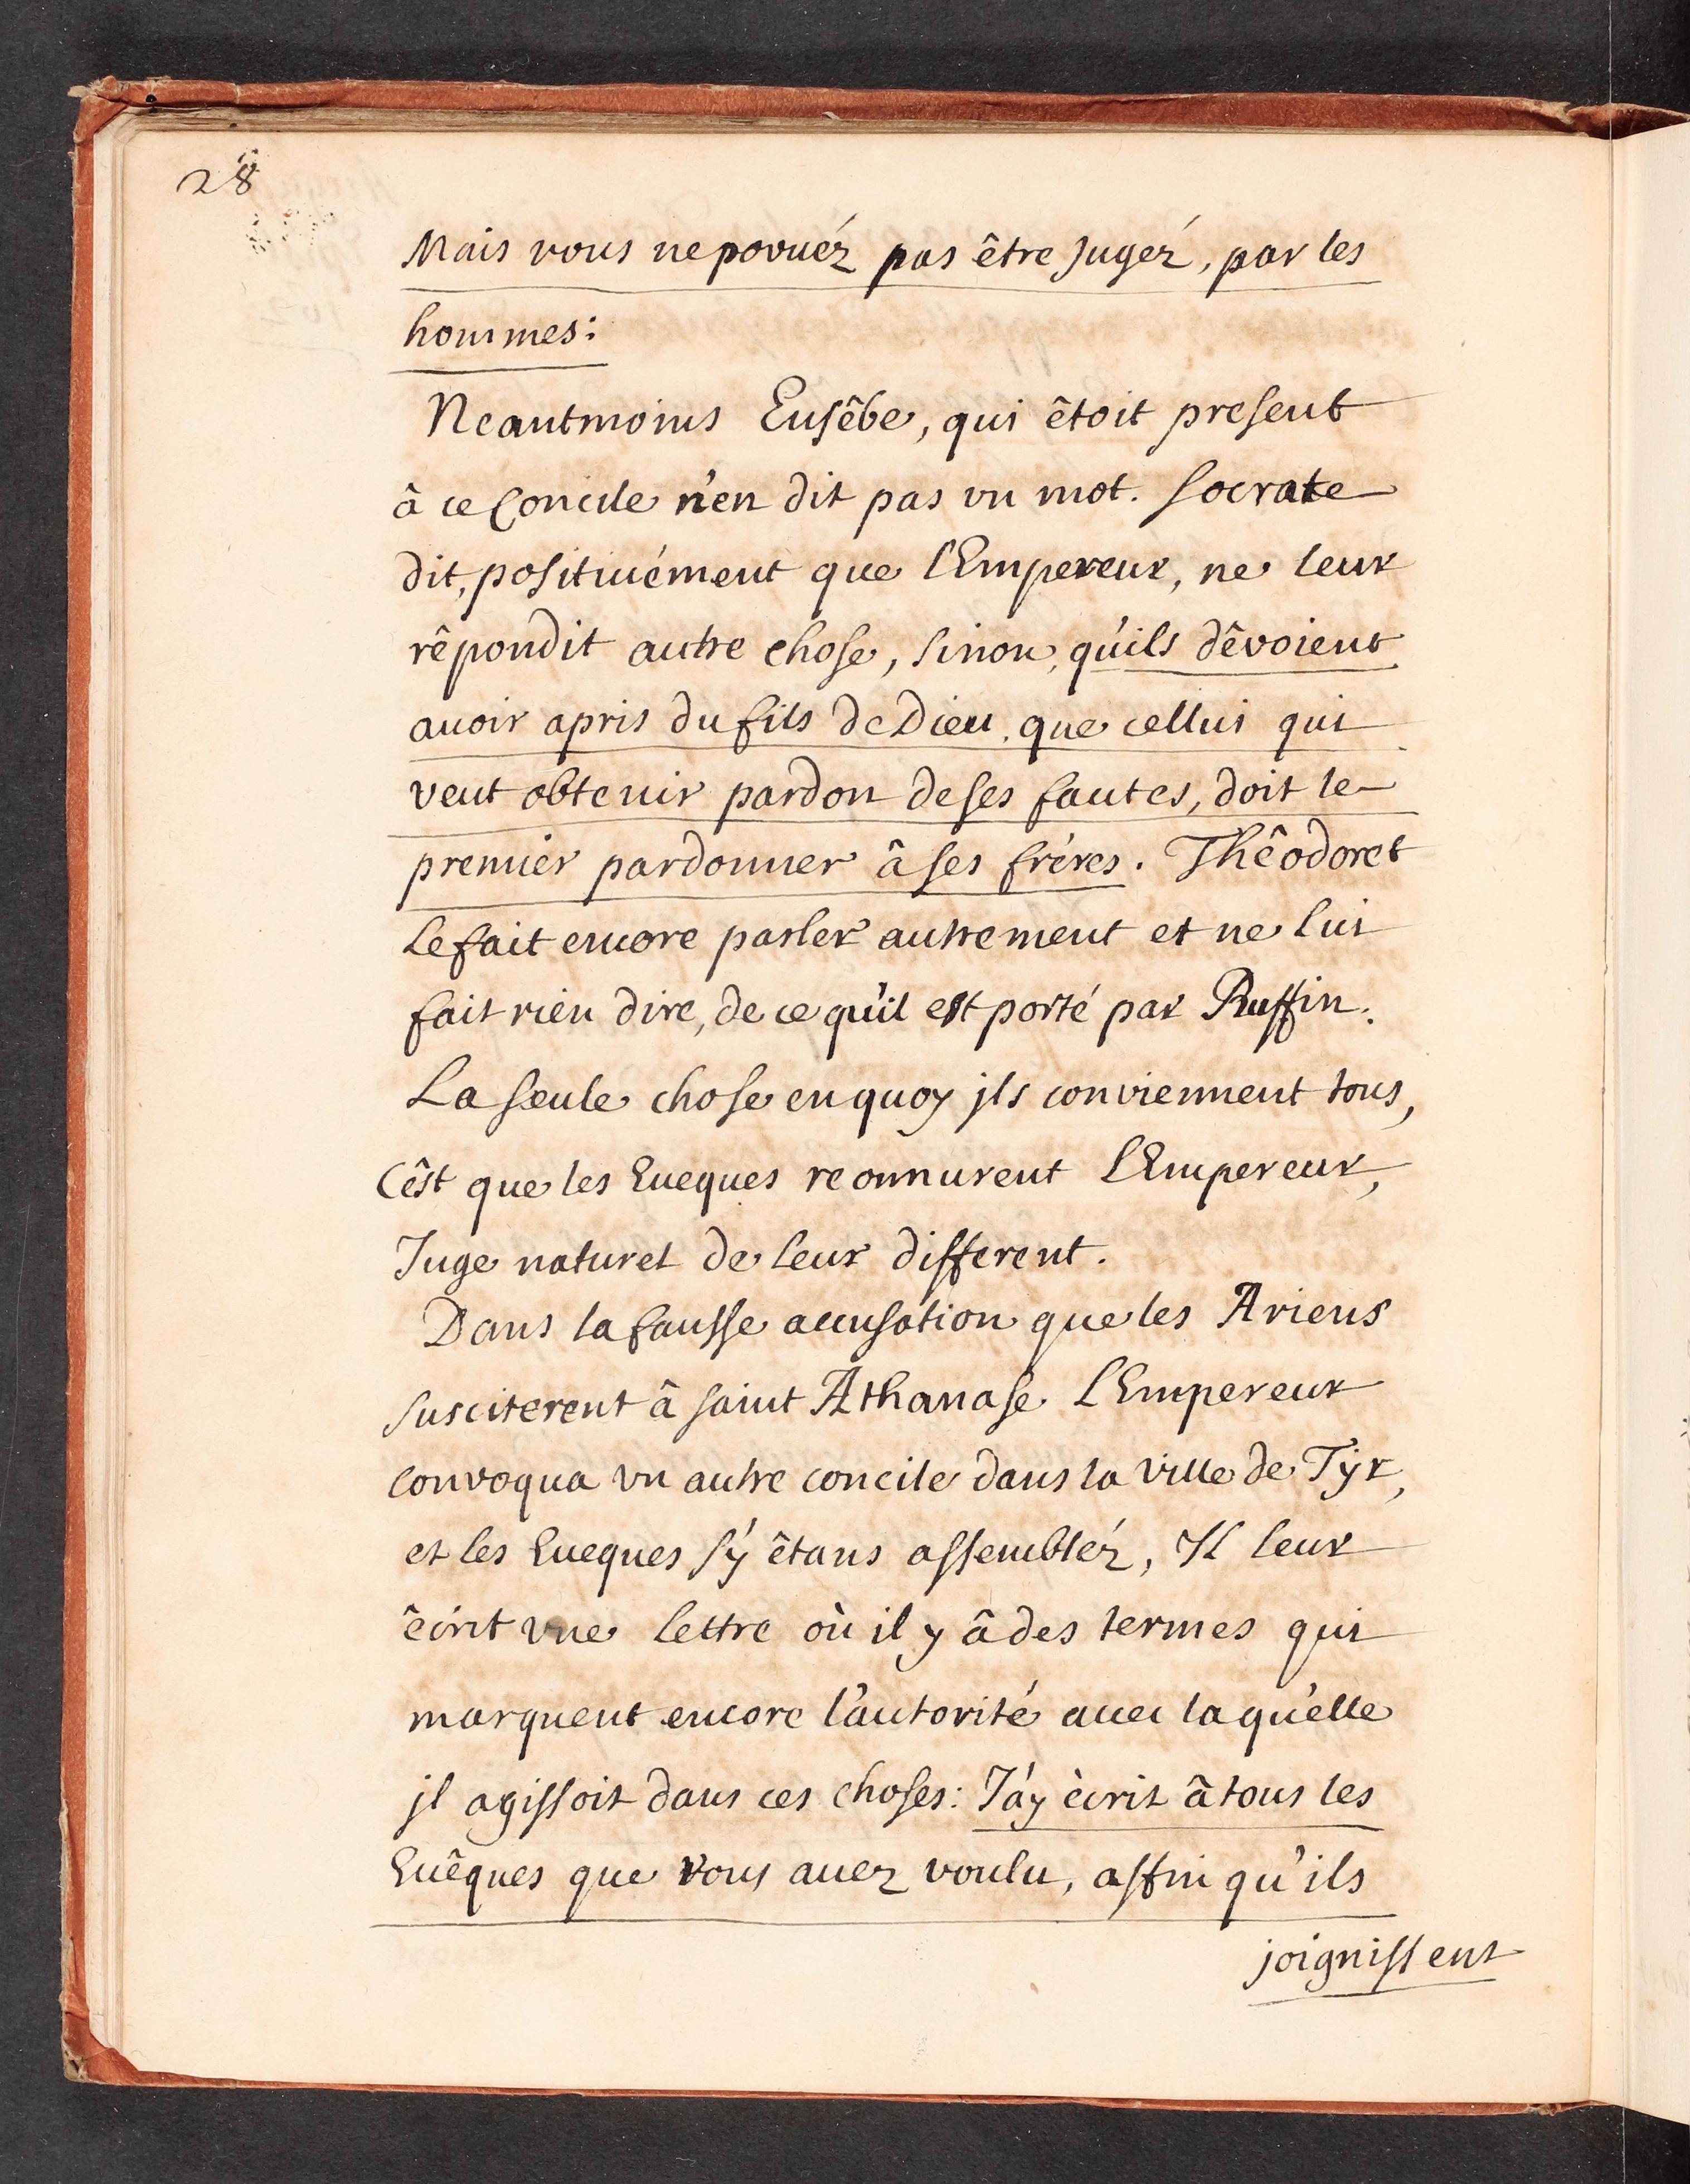 28
Mais vous ne povuéz pas être Jugéz, par les
hommes:
Neantmoins Eusêbe, qui êtoit present
â ce Concile n'en dit pas vn mot. Socrate
dit, positiuément que l'Empereur, ne leur
rêpondit autre chose, sinon, qu'ils dêvoient
auoir apris du fils de Dieu, que cellui qui
veut obtenir pardon de ses fautes, doit le
premiér pardonner â ses fréres. Thêodoret
Le fait encore parler autrement et ne lui
fait rien dire, de ce qu'il est porté par Ruffin.
La seule chose en quoy jls conviennent tous,
C'êst que les Eueques reonnurent l'Empereur,
Juge naturel de leur different.
Dans la fausse accusation que les Ariens
susciterent â saint Athanase. l'Empereur
convoqua vn autre concile dans la ville de Tyr,
et les Eueques s'y êtans assembléz, Il leur
êcrit vne lettre où il y â des termes qui
marquent encore l'autorité auec laqu'elle
jl agissoit dans ces choses: J'áy ècrit â tous les
Euêques que vous auez voulu, affin qu'ils
joignissent